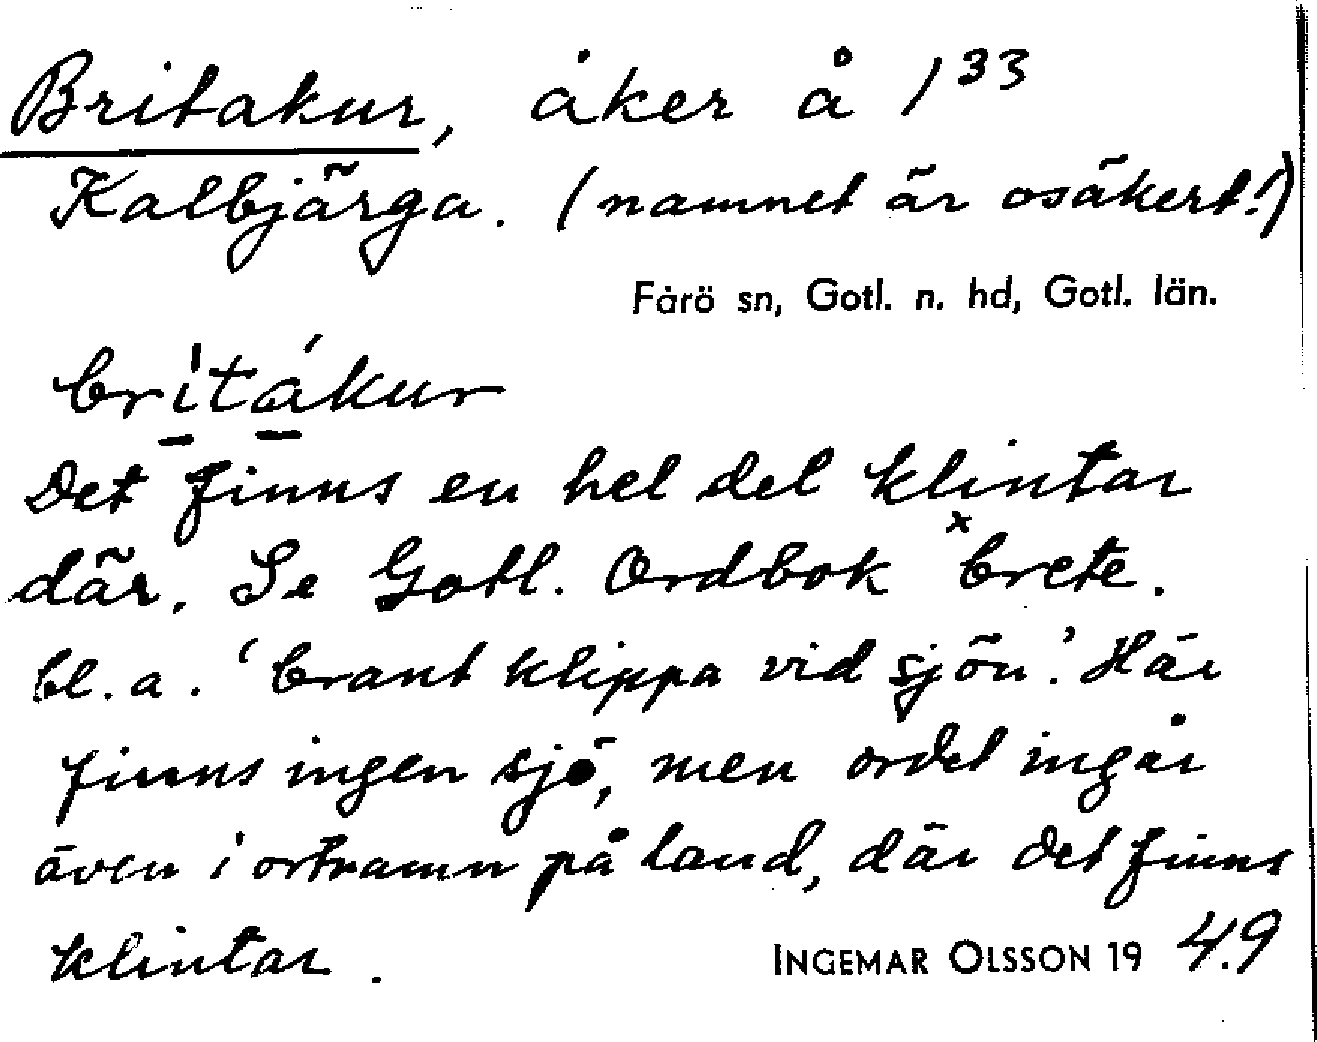 Britakur, åker å 1 33
Kalbjärga. (namnet är osäkert!)
Fårö sn, Gotl. n. hd, Gotl. län.
britákur
Det finns en hel del klintar
där. Se Gotl. Ordbok ˣbrete.
bl.a. 'brant klippa vid sjön'. Här
finns ingen sjö, men ordet ingår
även i ortnamn på land, där det finns
klintar.
INGEMAR OLSSON 19 49